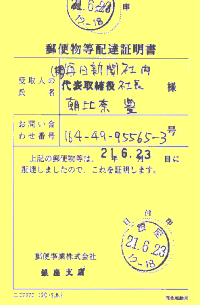 21.6.23
12-18
郵便物等配達証明書
受取人の
氏名
(株)毎日新聞社内
代表取締役社長
朝比奈 豊
様
お問い合
わせ番号
164-49-95565-3号
上記の郵便物等は、21.6.23日に
配達しましたので、これを証明します。
日付印
郵便事業株式会社
銀座支店
銀座
21.6.23
12-18